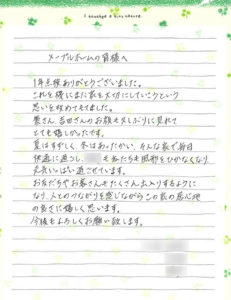 I touched a tiny nature.
メープルホームの皆様へ
1年点検ありがとうございました。
これを機にまた家を大切にしていこうという
思いを改めてもてました。
養さん、吉田さんのお顔も久しぶりに見れて
とても嬉しかったです。
夏はすずしく、冬はあったかい、そんな家で毎日
快適に過ごし、
も私たちも風邪をひかなくなり
元気いっぱい過ごせています。
お友だちやお客さんもたくさん出入りするように
なり、人とのつながりを感じながらこの家の居心地
の良さに嬉しく思います。
今後もよろしくお願い致します。